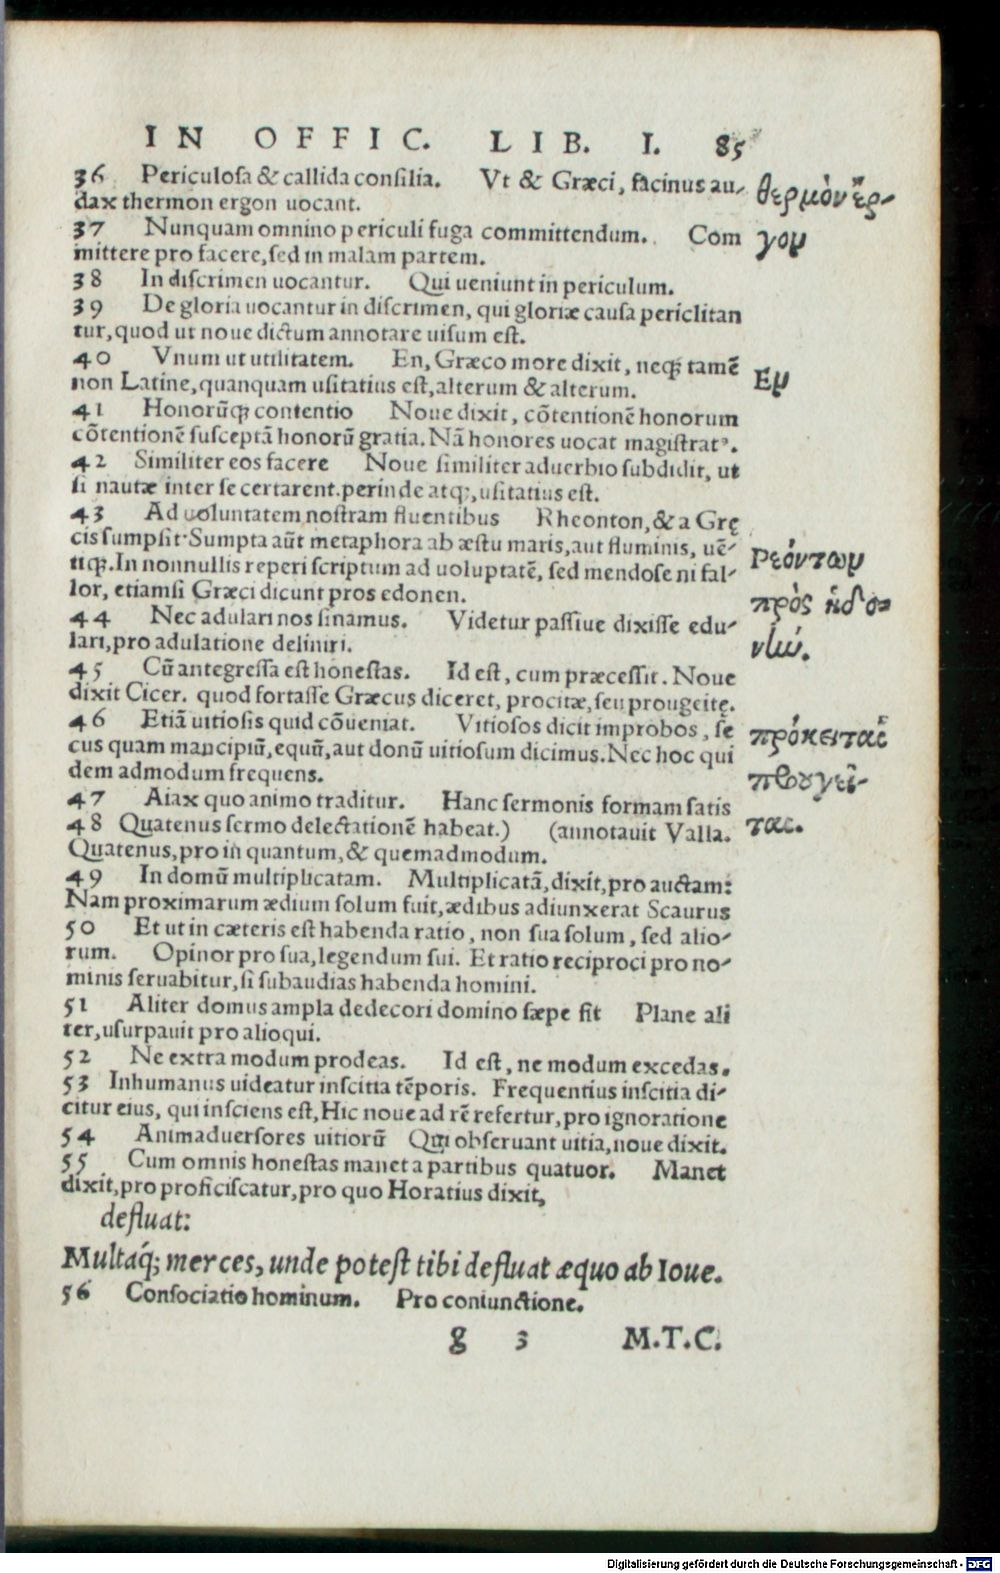 IN OFFIC. LIB. I. 85
36 Periculosa & callida consilia. Vt & Græci, facinus au-
dax thermon ergon uocant.
θερμὸν ἔρ-
γον
37 Nunquam omnino periculi fuga committendum. Com
mittere pro facere, sed in malam partem.
38 In discrimen uocantur. Qui ueniunt in periculum.
39 De gloria uocantur in discrimen, qui gloriæ causa periclitan
tur, quod ut noue dictum annotare uisum est.
40 Vnum ut utilitatem. En, Græco more dixit, neq; tamē
non Latine, quanquam usitatius est, alterum & alterum.
Εν
41 Honorūq; contentio Noue dixit, cōtentionē honorum
cōtentionē susceptā honorū gratia. Nā honores uocat magistratꝰ.
42 Similiter eos facere Noue similiter aduerbio subdidit, ut
si nautæ inter se certarent. perinde atq;, usitatius est.
43 Ad uoluntatem nostram fluentibus Rheonton, & a Grę
cis sumpsit. Sumpta aūt metaphora ab æstu maris, aut fluminis, uē-
tiq;. In nonnullis reperi scriptum ad uoluptatē, sed mendose ni fal-
lor, etiamsi Græci dicunt pros edonen.
Ρεόντων
πρὸς ἡδο-
νὴν.
44 Nec adulari nos sinamus. Videtur passiue dixisse edu-
lari, pro adulatione deliniri.
45 Cū antegressa est honestas. Id est, cum præcessit. Noue
dixit Cicer. quod fortasse Græcus diceret, procitæ, seu prougeitę.
46 Etiā uitiosis quid cōueniat. Vitiosos dicit improbos, se
cus quam mancipiū, equū, aut donū uitiosum dicimus. Nec hoc qui
dem admodum frequens.
πρόκειται
προυγεῖ-
ται.
47 Aiax quo animo traditur. Hanc sermonis formam satis
48 Quatenus sermo delectationē habeat.) (annotauit Valla.
Quatenus, pro in quantum, & quemadmodum.
49 In domū multiplicatam. Multiplicatā, dixit, pro auctam:
Nam proximarum ædium solum fuit, ædibus adiunxerat Scaurus
50 Et ut in cæteris est habenda ratio, non sua solum, sed alio-
rum. Opinor pro sua, legendum sui. Et ratio reciproci prono-
minis seruabitur, si subaudias habenda homini.
51 Aliter domus ampla dedecori domino sæpe fit Plane ali
ter, usurpauit pro alioqui.
52 Ne extra modum prodeas. Id est, ne modum excedas.
53 Inhumanus uideatur inscitia tēporis. Frequentius inscitia di-
citur eius, qui insciens est, Hic noue ad rē refertur, pro ignoratione
54 Animaduersores uitiorū Qui obseruant uitia, noue dixit.
55 Cum omnis honestas manet a partibus quatuor. Manet
dixit, pro proficiscatur, pro quo Horatius dixit,
defluat:
Multaq́; merces, unde potest tibi defluat æquo ab Ioue.
56 Consociatio hominum. Pro coniunctione.
g 3 M.T.C.
Digitalisierung gefördert durch die Deutsche Forschungsgemeinschaft - DFG